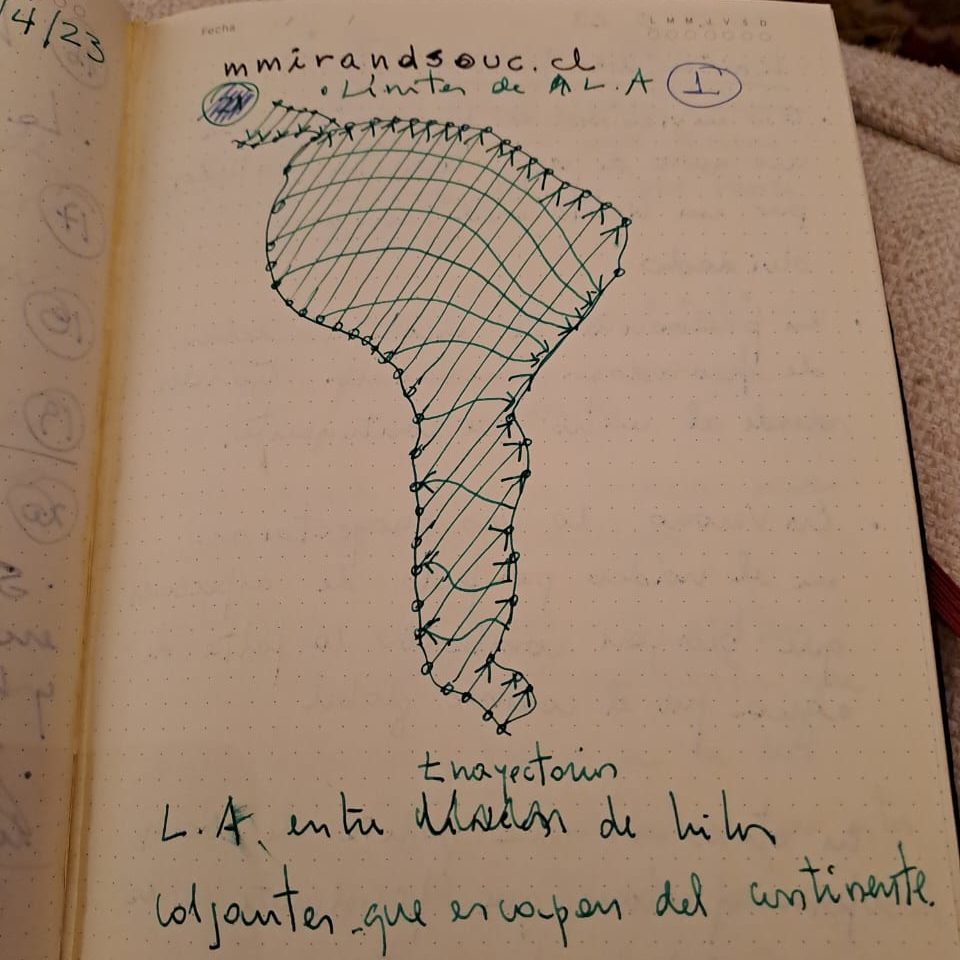 /4/23
Fecha
L M M J V S D
mmirands@uc.cl
• Límites de L.A I
trayectorias
L.A. entre de hilos
colgantes que escapan del continente.